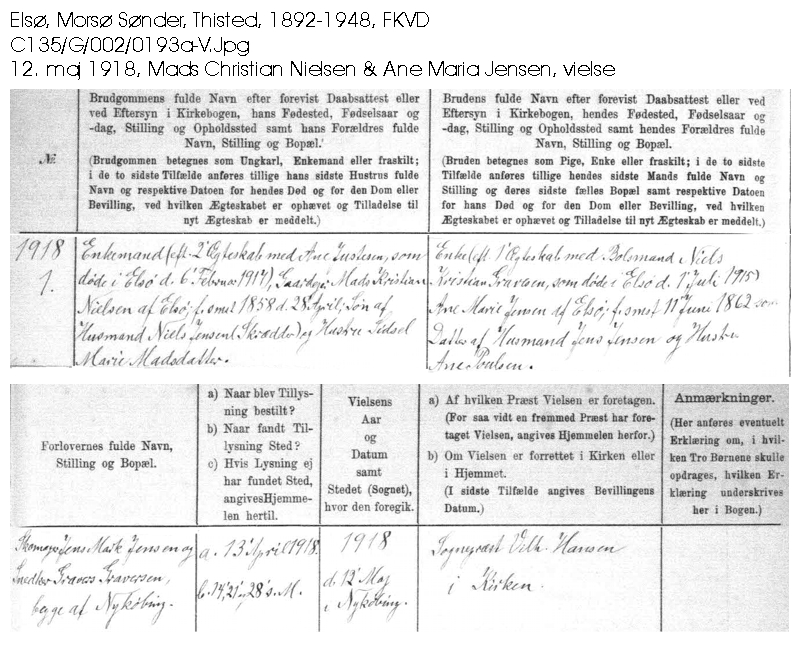 Elsø, Morsø Sønder, Thisted, 1892-1948, FKVD
C135/G/002/0193a-V.Jpg
12. maj 1918, Mads Christian Nielsen & Ane Maria Jensen, vielse
№
Brudgommens fulde Navn efter forevist Daabsattest eller
ved Eftersyn i Kirkebogen, hans Fødested, Fødselsaar og
-dag, Stilling og Opholdssted samt hans Forældres fulde
Navn, Stilling og Bopæl.
(Brudgommen betegnes som Ungkarl, Enkemand eller fraskilt;
i de to sidste Tilfælde anføres tillige hans sidste Hustrus fulde
Navn og respektive Datoen for hendes Død og for den Dom eller
Bevilling, ved hvilken Ægteskabet er ophævet og Tilladelse til
nyt Ægteskab er meddelt.)
Brudens fulde Navn efter forevist Daabsattest eller ved
Eftersyn i Kirkebogen, hendes Fødested, Fødselsaar og
-dag, Stilling og Opholdssted samt hendes Forældres fulde
Navn, Stilling og Bopæl.
(Bruden betegnes som Pige, Enke eller fraskilt; i de to sidste
Tilfælde anføres tillige hendes sidste Mands fulde Navn og
Stilling og deres sidste fælles Bopæl samt respektive Datoen
for hans Død og for den Dom eller Bevilling, ved hvilken
Ægteskabet er ophævet og Tilladelse til nyt Ægteskab er meddelt.)
1918
1.
Enkemand (eft. 2' Ægteskab med Ane Justesen, som
døde i Elsø d. 6' Februar 1917), Gaardejer Mads Kristian
Nielsen af Elsø, f. smst 1858 d. 28' April, Søn af
Husmand Niels Jensen (Skrædder) og Hustru Sidsel
Marie Madsdatter.
Enke (eft. 1' Ægteskab med Bolsmand Niels
Kristian Graugaa, som døde i Elsø d. 1' Juli 1915)
Ane Marie Jensen af Elsø, f. smst 11' Juni 1862 som
Datter af Husmand Jens Jensen og Hustru
Ane Poulsen.
Forlovernes fulde Navn,
Stilling og Bopæl.
a) Naar blev Tillys-
ning bestilt?
b) Naar fandt Til-
lysning Sted?
c) Hvis Lysning ej
har fundet Sted,
angives Hjemme-
len hertil.
Vielsens
Aar
og
Datum
samt
Stedet (Sognet),
hvor den foregik.
a) Af hvilken Præst Vielsen er foretagen.
(For saa vidt en fremmed Præst har fore-
taget Vielsen, angives Hjemmelen herfor.)
b) Om Vielsen er forrettet i Kirken eller
i Hjemmet.
(I sidste Tilfælde angives Bevillingens
Datum.)
Anmærkninger.
(Her anføres eventuelt
Erklæring om, i hvil-
ken Tro Børnene skulle
opdrages, hvilken Er-
klæring underskrives
her i Bogen.)
Skomager Jens Mark Jensen og
Snedker Gravers Graversen,
begge af Nykøbing.
a. 13' April 1918.
b. 14', 21' 28' s. M.
1918
d. 12' Maj
i Nykøbing.
Sognepræst Vilh. Hansen
i Kirken.